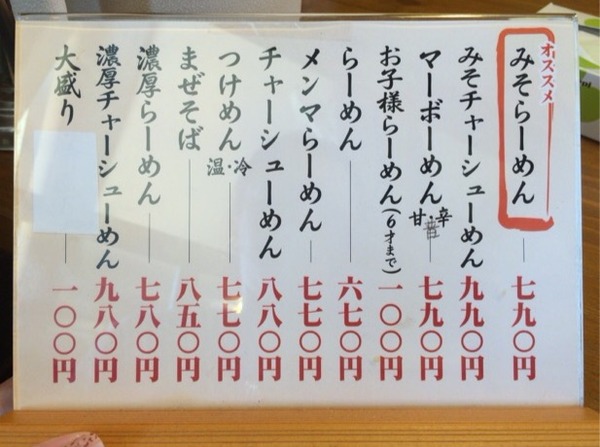 オススメ
みそらーめん 七九〇円
みそチャーシューめん 九九〇円
マーボーめん 甘・辛 七九〇円
お子様らーめん(6才まで) 一〇〇円
らーめん 六七〇円
メンマらーめん 七七〇円
チャーシューめん 八八〇円
つけめん 温・冷 七七〇円
まぜそば 八五〇円
濃厚らーめん 七八〇円
濃厚チャーシューめん 九八〇円
大盛り 一〇〇円